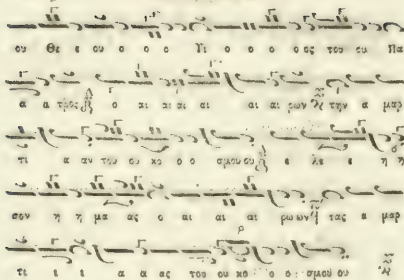 ου Θε ε ου ο ο ο Υι ο ο ο ο ος του ου Πα
α α τρος ο αι αι αι αι αι αι ρων την α μαρ
τι α αν του ου κο ο ο σμου ου ε λε ε η η
σον η η μα ας ο αι αι αι ρω ων τας α μαρ
τι ι ι α α ας του ου κο ο ο σμου ου